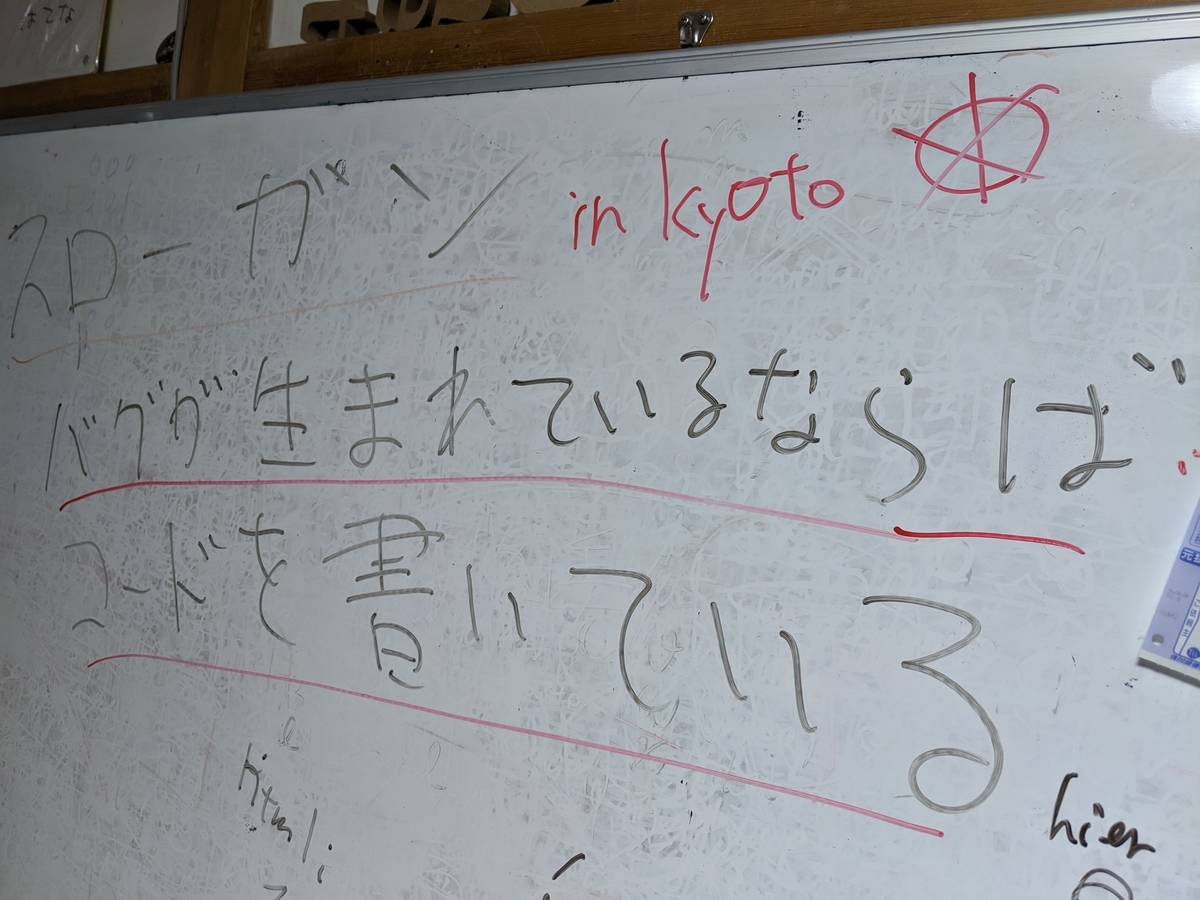 はてな
スローガン in kyoto
バグが生まれているならば
コードを書いている
html
hier